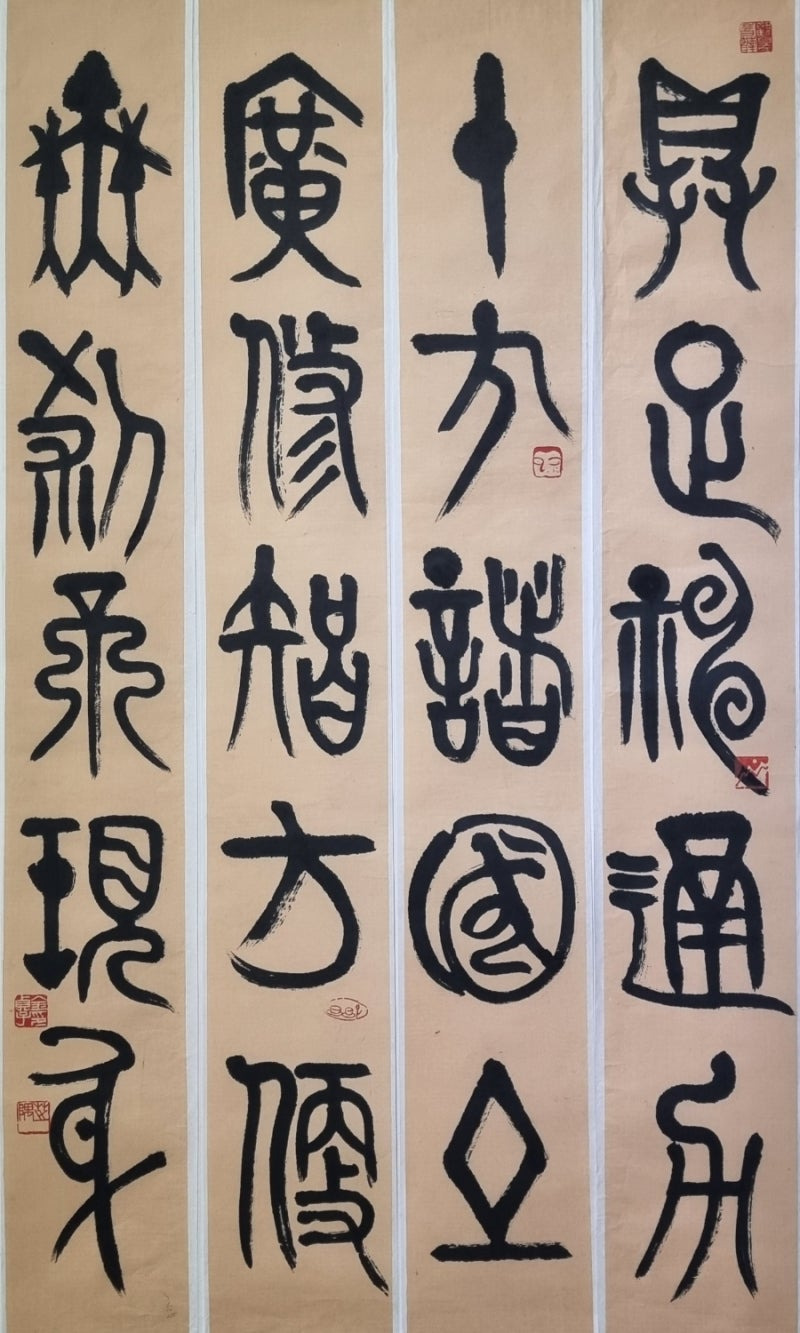 具足神通力
十方諸國土
廣修智方便
無刹不現身